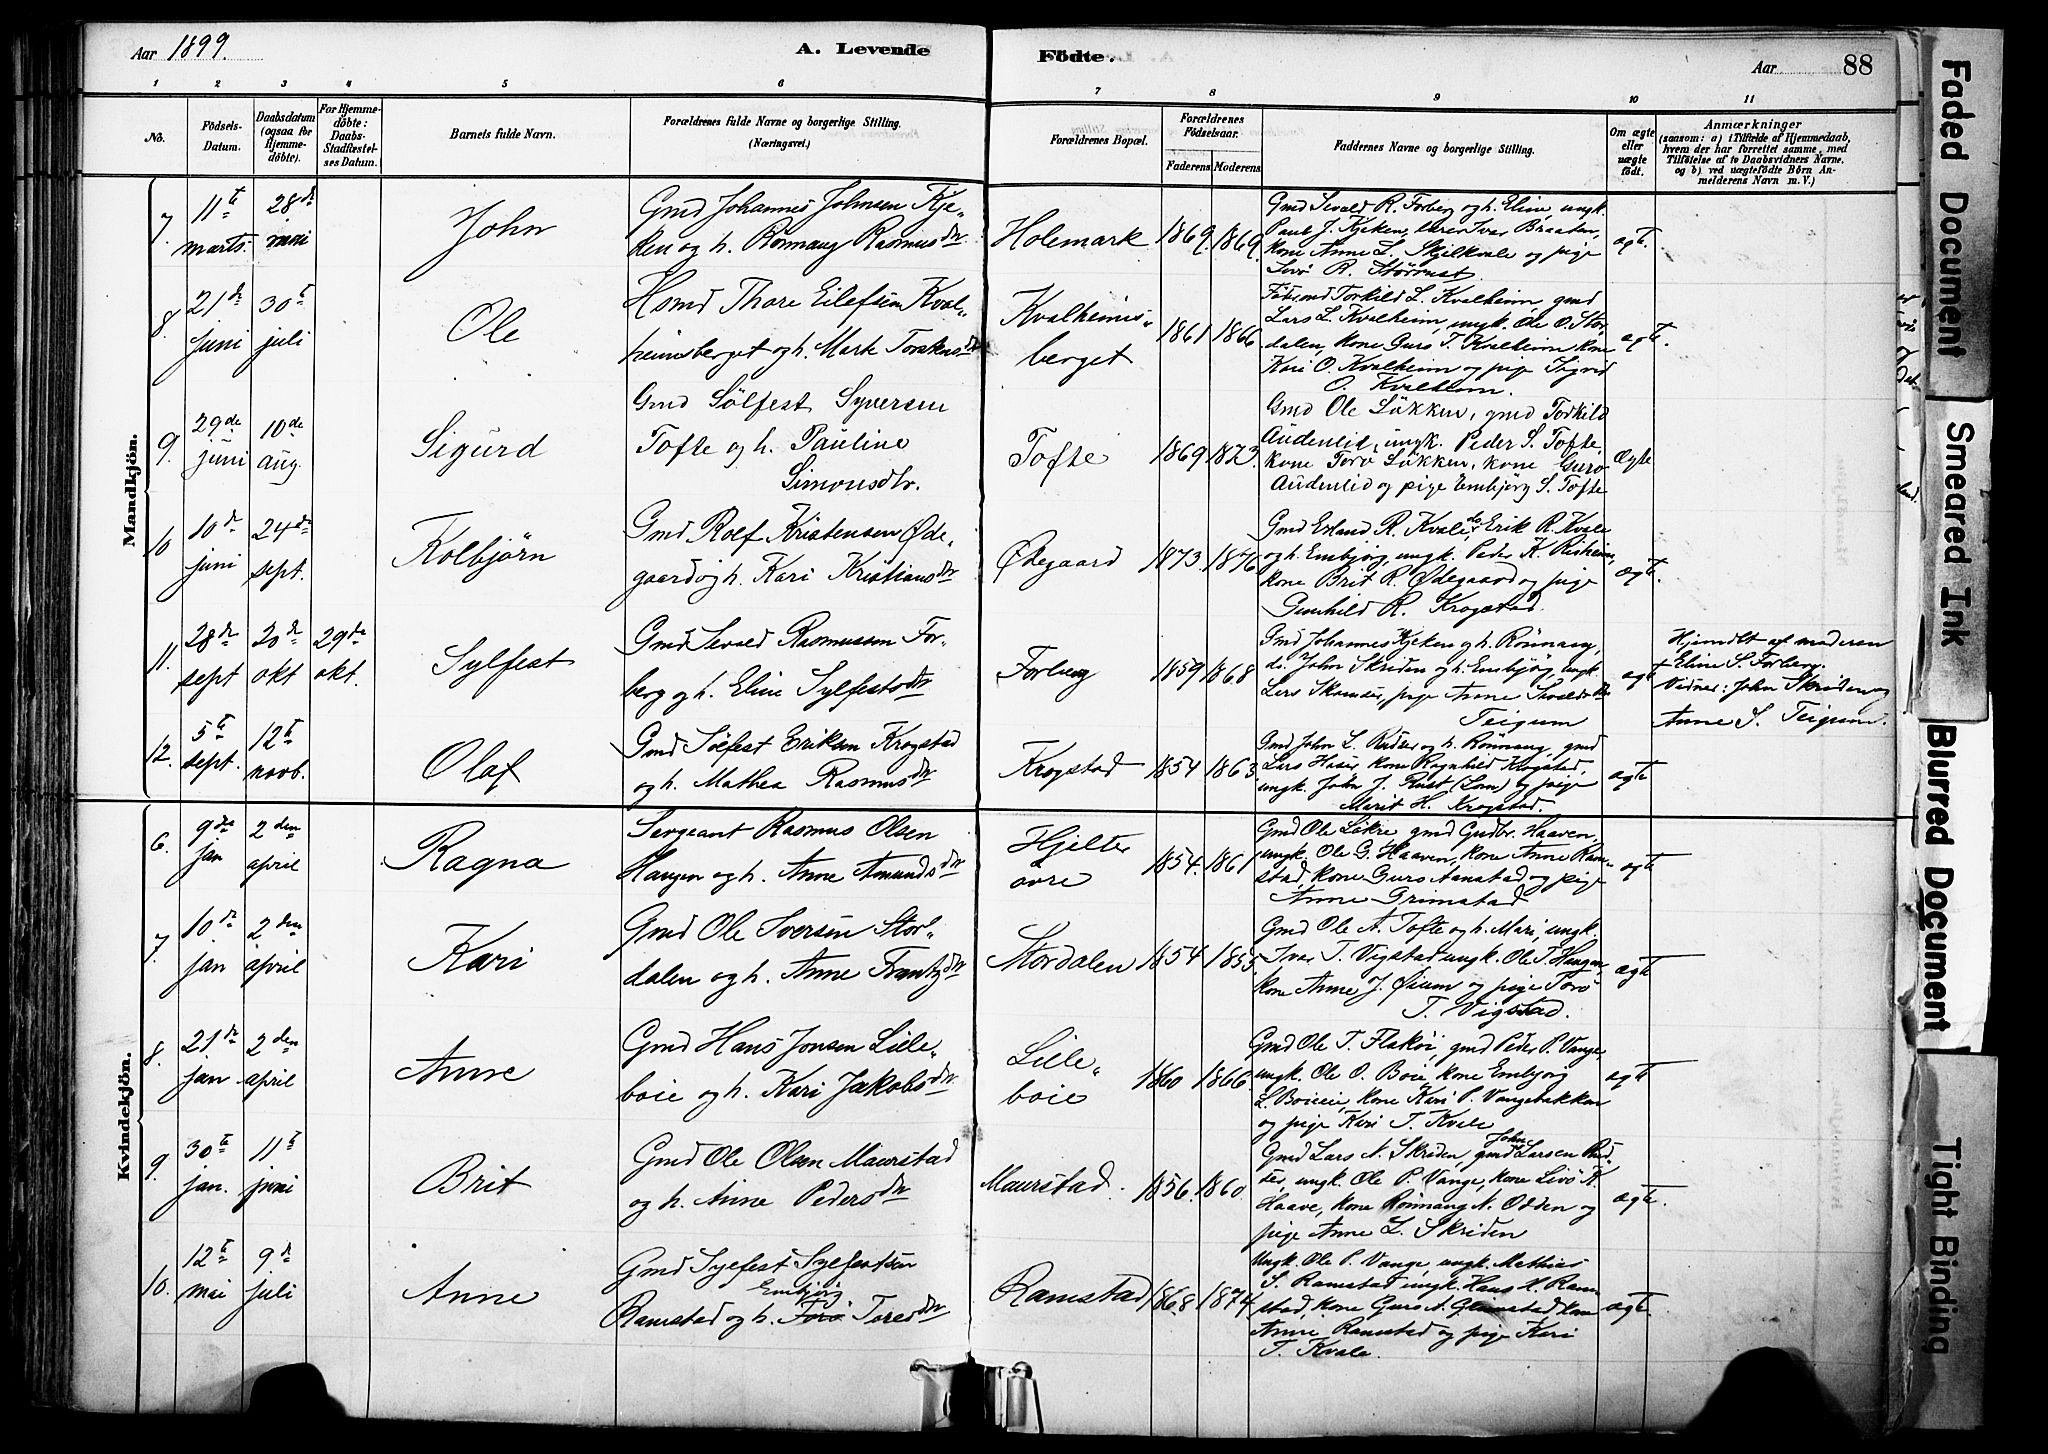 Aar 1899.
A. Levende
Födte.
Aar
88
1 2 3 4 5 6 7 8 9 10 11
No.
Födsels-Datum.
Daabsdatum (ogsaa for Hjemmedöbte).
For Hjemmedöbte: Daabs-Stadfæstelses Datum.
Barnets fulde Navn.
Forældrenes fulde Navne og borgerlige Stilling.
(Næringsvei.)
Forældrenes Bopæl.
Forældrenes Födselsaar.
Faderens Moderens
Faddernes Navne og borgerlige Stilling.
Om ægte eller uægte födt.
Anmærkninger
(saasom: a) i Tilfælde af Hjemmedaab,
hvem der har forrettet samme, med
Tilföielse af to Daabsvidners Navne,
og b) ved uægtefödte Börn Anmelderens Navn m. V.)
Mandkjön.
7. 11te marts. 28de mai
John
Gmd Johannes Johnsen Kje-
ken og h. Rönnaug Rasmusdtr
Holemark 1869. 1869.
Gmd Sevald R. Forberg og h. Eline, ungk.
Paul J. Kjeken, lærer Ivar Braaten,
kone Anne L. Skjelkvale og pige
ægte.
8. 21de juni 30te juli
Ole
Hsmd Thore Eilefsen Kval-
heimsberget og h. Marit Torkensdtr
Kvalheims-
berget
1861 1866
Födsmd Torkild L. Kvalheim, gmd
Lars L. Kvalheim, ungk. Ole O. Stor-
dalen, kone Guro T. Kvalheim kone
Kari O. Kvalheim og pige Sigrid
O. Kvalheim.
ægte.
9. 29de juni 10de aug.
Sigurd
Gmd Sölfest Syversen
Tofte og h. Pauline
Simonsdtr.
Tofte 1869 1873.
Gmd Ole Lökken, gmd Torkild
Audenlid, ungk. Peder S. Tofte,
kone Torö Lökken, kone Guro
Audenlid og pige Embjörg S. Tofte
Ægte
10 10de juni 24de sept.
Kolbjörn
Gmd Rolf Kristensen Øde-
gaard og h. Kari Kristiansdtr
Ødegaard 1873. 1876
Gmd Erland R. Kvale, do Erik R. Kvale
og h. Embjörg, ungk. Peder K. Risheim,
kone Brit R. Ødegaard og pige
Gunhild R. Krogstad.
ægte.
11. 28de sept 20de okt 29de okt.
Sylfest
Gmd Sevald Rasmussen For-
berg og h. Eline Sylfestsdtr
Forberg 1859 1868
Gmd Johannes Kjeken og h. Rönnaug,
do. John Skriden og h. Embjörg, ungk.
Lars Skamsar, pige Anne Sevaldsdtr
Teigum
ægte
Hjemdbt af moderen
Eline S. Forberg.
Vidner: John Skriden og
Anne S. Teigum.
12. 5te sept. 12te novb.
Olaf
Gmd Sölfest Eriksen Krogstad
og h. Mathea Rasmusdtr
Krogstad 1854 1863
Gmd John L. Rudser og h. Rönnaug, gmd
Lars Haser, kone Ragnhild Krogstad,
ungk. John J. Rust (Lom) og pige
Marit H. Krogstad.
ægte
Kvindekjön.
6. 9de jan 2den april
Ragna
Sergeant Rasmus Olsen
Haugen og h. Anne Amundsdtr
Hjelter
övre
1854. 1861
Gmd Ole Lökre, gmd Gudbr. Haaven,
ungk. Ole G. Haaven, kone Anne Ram-
stad, kone Guro Aanstad og pige
Anne Grimstad
ægte
7. 10de jan 2den april
Kari
Gmd Ole Iversen Stor-
dalen og h. Anne Frantzdtr
Stordalen 1854 1855
Gmd Ole A. Tofte og h. Mari, ungk.
Ivar T. Vigstad ungk. Ole T. Haugen,
kone Anne J. Øium og pige Torö
T. Vigstad.
ægte
8. 21de jan 2den april
Anne
Gmd Hans Jonsen Lille-
boie og h. Kari Jakobsdtr
Lille-
boie
1860 1866.
Gmd Ole T. Flaköi, gmd Peder P. Vange,
ungk. Ole O. Boie, kone Embjörg
L. Boieie, kone Kari P. Vangebakken
og pige Kari T. Kvale
ægte
9. 30te jan. 11te juni
Brit
Gmd Ole Olsen Maurstad
og h. Anne Pedersdtr
Maurstad. 1856. 1860
Gmd Lars N. Skriden, gmd John Larsen Rud-
ser, ungk. Ole P. Vange, kone Livö K.
Haave, kone Rönnaug N. Odden og
pige Anne L. Skriden
ægte.
10. 12te mai 9de juli
Anne
Gmd Sylfest Sylfestsen
Embjörg
Ramstad og h. Torö Toresdtr
Ramstad 1868. 1874
Ungk. Ole P. Vange, ungk. Mathias
S. Ramstad ungk. Hans H. Ram-
stad, kone Guro A. Grimstad kone
Anne Ramstad og pige Kari
T. Kvale.
ægte
Faded Document
Smeared Ink
Blurred Document
Tight Binding